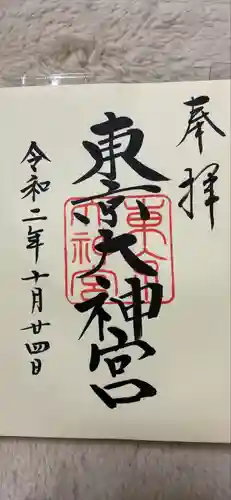 奉拝
東京大神宮
東京大神宮
令和二年十月廿四日